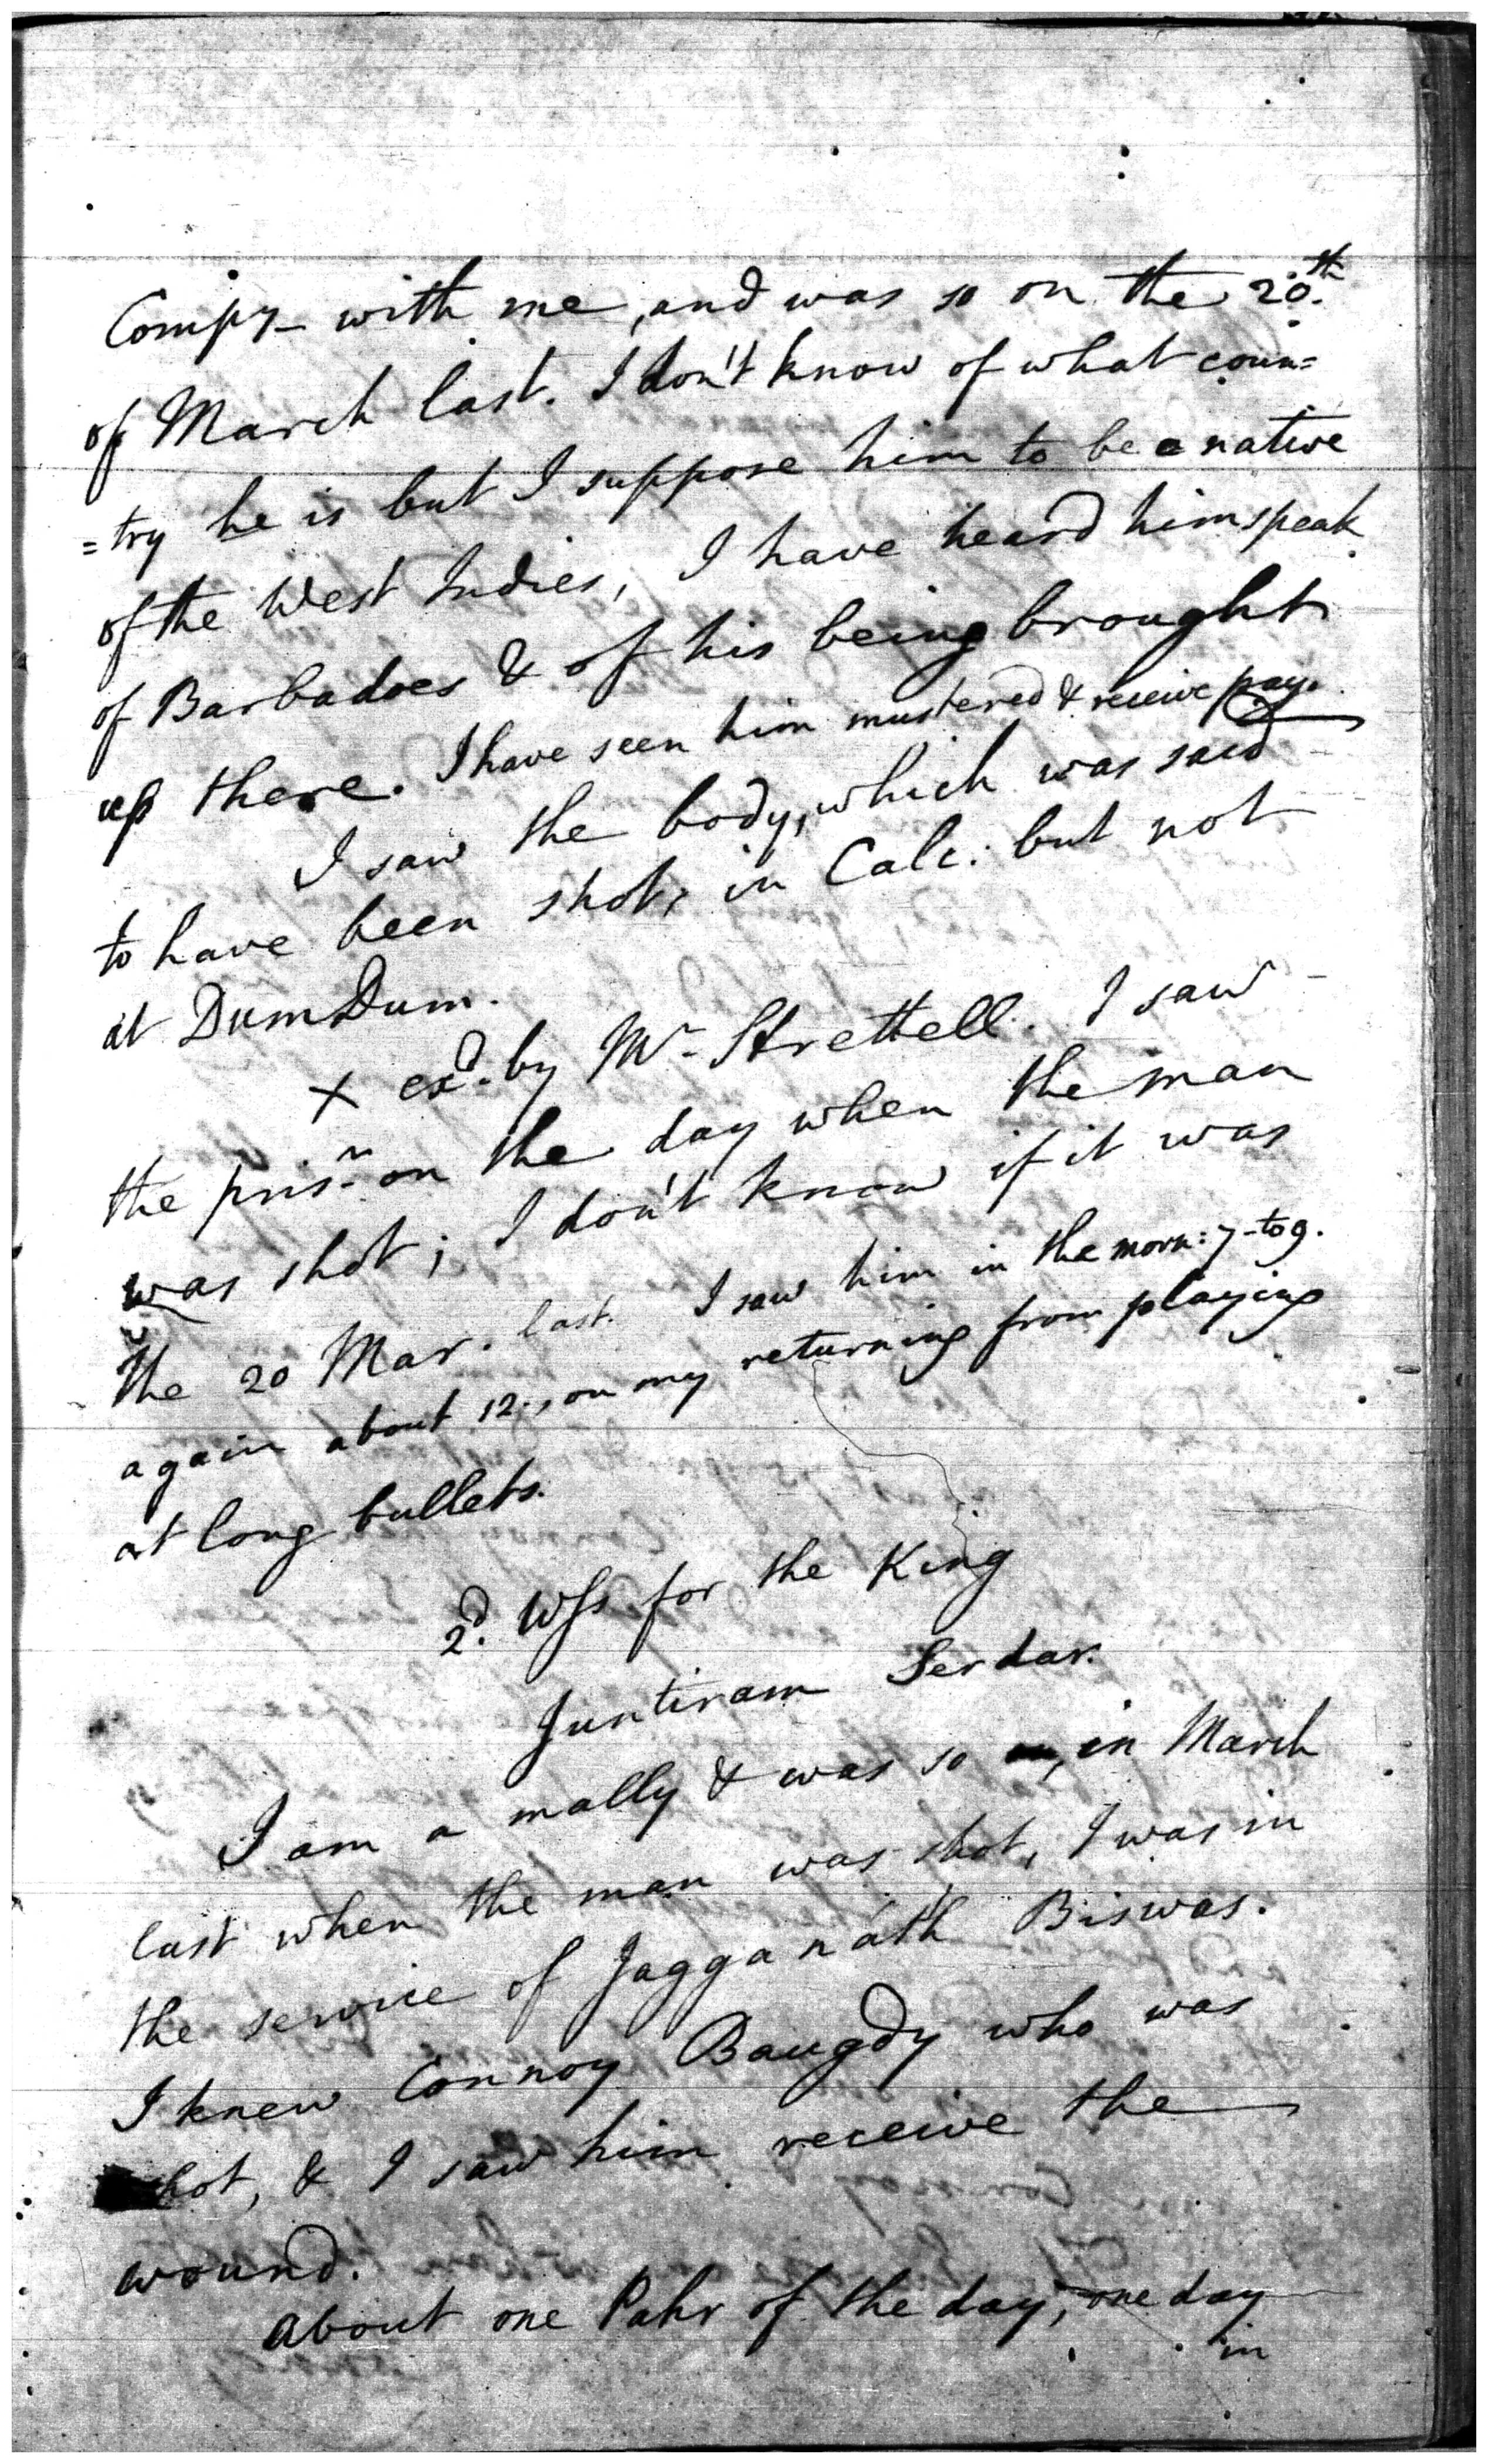 Compy- with me, and was so on the 20.th
of March last. I don't know of what coun=
=try he is but I suppose him to be a native
of the West Indies, I have heard him speak
of Barbadoes & of his being brought
up there. I have seen him mustered & receive pay.
I saw the body, which was said
to have been shot, in Calc: but not
at DumDum.
X exd. by Mr- Strettell. I saw
the prisr. on the day when the man
was shot; I don't know if it was
the 20 Mar. last. I saw him in the morn: 7 to 9.
again about 12., on my returning from playing
at long bullets.
2d. Wss for the King
Juntiram Serdar.
I am a mally & was so in March
last when the man was shot, I was in
the service of Jagganáth Biswas.
I knew Connoy Baugdy who was
shot, & I saw him receive the
wound.
About one Pahr of the day, one day
in